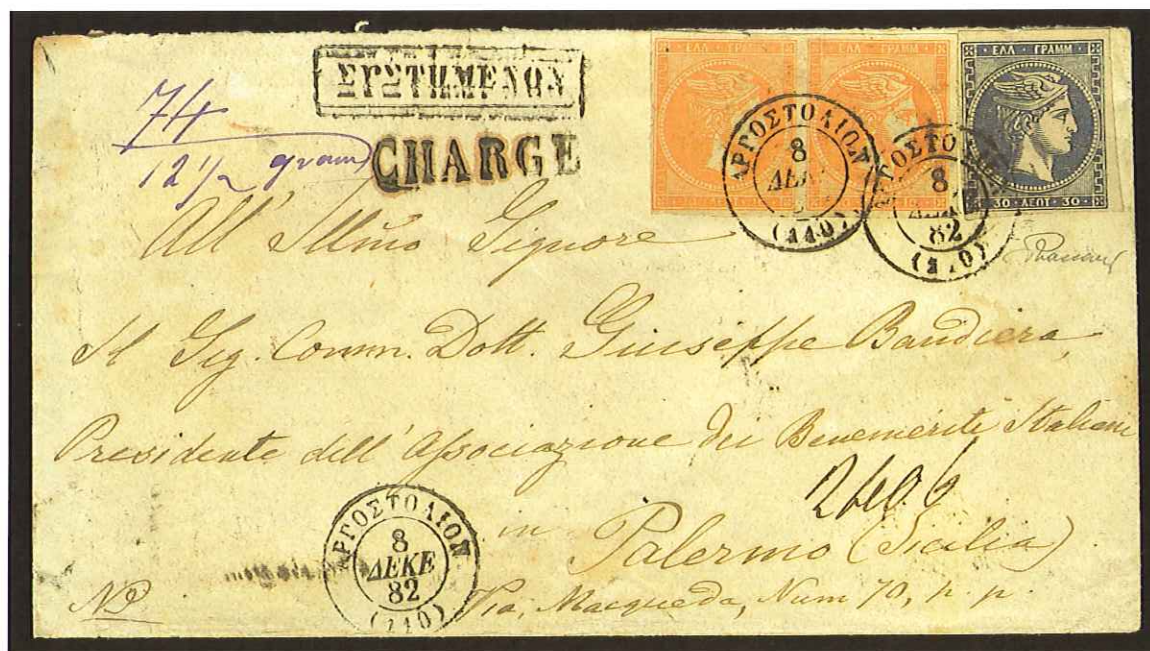 ΣΥΣΤΗΜΕΝΟΝ
CHARGE
74
12 1/2 gram
ΕΛΛ ΓΡΑΜΜ
ΕΛΛ ΓΡΑΜΜ
ΕΛΛ ΓΡΑΜΜ
30 ΛΕΠΤ 30
ΑΡΓΟΣΤΟΛΙΟΝ
8
ΔΕΚ
(110)
ΑΡΓΟΣΤΟΛΙΟΝ
8
82
(110)
All' Illmo Signore
Il Sig. Comm. Dott. Giuseppe Bandiera
Presidente dell' Associazione dei Benemeriti Italiani
in
Palermo (Sicilia)
Via, Macqueda, Num 70, p. p.
ΑΡΓΟΣΤΟΛΙΟΝ
8
ΔΕΚΕ
82
(110)